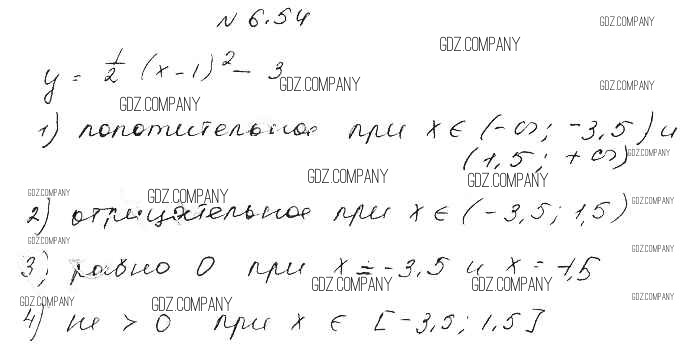 № 6.54
GDZ.COMPANY
GDZ.COMPANY
y = 1/2 (x-1)² - 3
GDZ.COMPANY
GDZ.COMPANY
GDZ.COMPANY
1) положительное при x ∈ (-∞; -3,5) и
(1,5; +∞)
GDZ.COMPANY
GDZ.COMPANY
GDZ.COMPANY
GDZ.COMPANY
GDZ.COMPANY
GDZ.COMPANY
2) отрицательное при x ∈ (-3,5; 1,5)
GDZ.COMPANY
GDZ.COMPANY
GDZ.COMPANY
3) равно 0 при x = -3,5 и x = 1,5
GDZ.COMPANY
GDZ.COMPANY
GDZ.COMPANY
GDZ.COMPANY
GDZ.COMPANY
4) не > 0 при x ∈ [-3,5; 1,5]